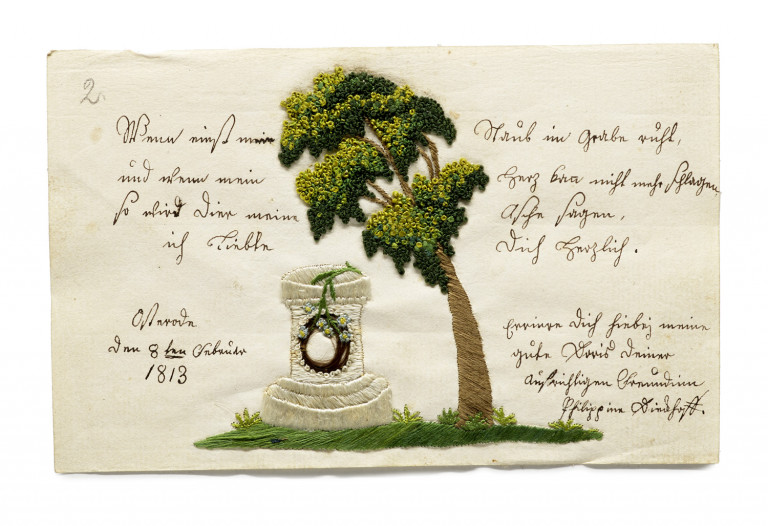 2.
Wenn einst mein Staub im Grabe ruht,
und wenn mein Herz kan nicht mehr schlagen
so wird Dier meine Asche sagen,
ich Liebte Dich Herzlich.
Osterode
den 8ten Februar
1813
Errinre Dich hiebei meine
gute Doris Deiner
aufrichtigen Freundinn
Philippine Diedhoff.